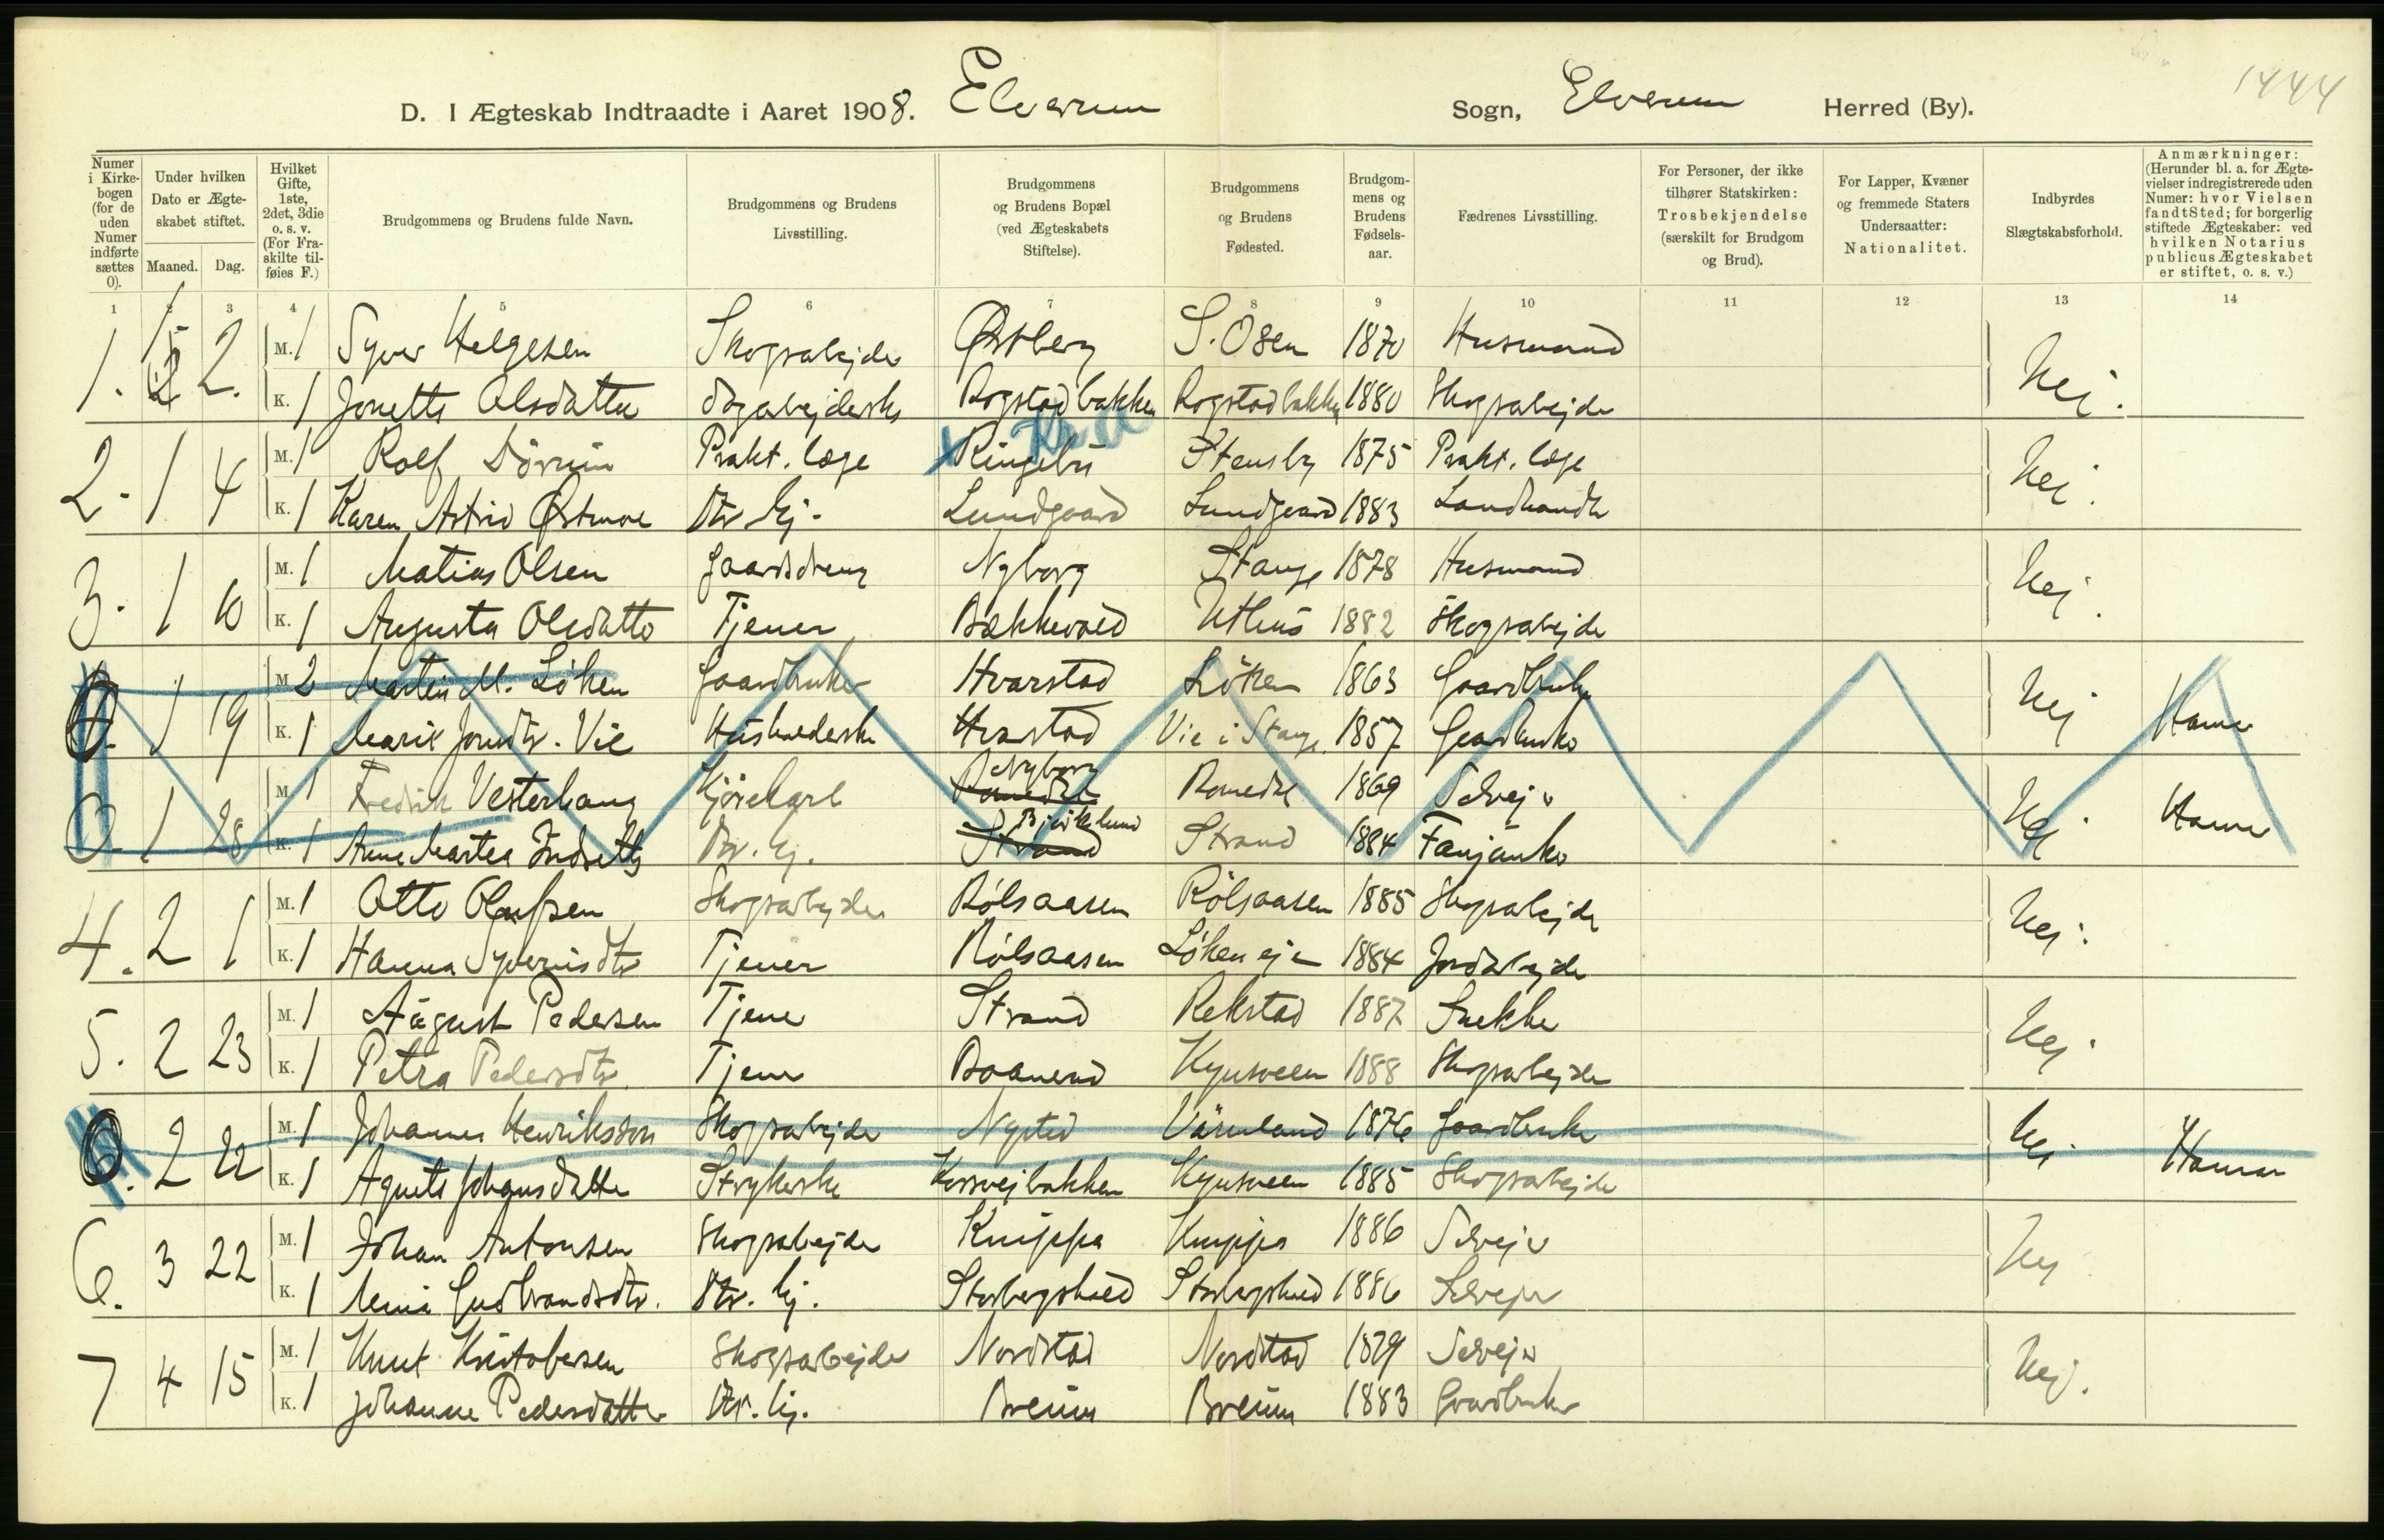 1444
D. I Ægteskab Indtraadte i Aaret 1908. Elverum Sogn, Elverum Herred (By).
Numer i Kirkebogen (for de uden Numer indførte sættes 0).
Under hvilken Dato er Ægteskabet stiftet.
Maaned. Dag.
Hvilket Gifte, 1ste, 2det, 3die o. s. v. (For Fraskilte tilføies F.)
Brudgommens og Brudens fulde Navn.
Brudgommens og Brudens Livsstilling.
Brudgommens og Brudens Bopæl (ved Ægteskabets Stiftelse).
Brudgommens og Brudens Fødested.
Brudgommens og Brudens Fødselsaar.
Fædrenes Livsstilling.
For Personer, der ikke tilhører Statskirken: Trosbekjendelse (særskilt for Brudgom og Brud).
For Lapper, Kvæner og fremmede Staters Undersaatter: Nationalitet.
Indbyrdes Slægtskabsforhold.
Anmærkninger: (Herunder bl. a. for Ægtevielser indregistrerede uden Numer: hvor Vielsen fandt Sted; for borgerlig stiftede Ægteskaber: ved hvilken Notarius publicus Ægteskabet er stiftet, o. s. v.)
1 2 3 4 5 6 7 8 9 10 11 12 13 14
1. 2. M. 1 Syver Helgesen Skogsarbejder Østberg S. Osen 1870 Husmand Nej.
K. 1 Jonette Olsdatter Rogstadbakken Rogstadbakken 1880 Skogsarbejder
2. 1 4 M. 1 Rolf Prakt. læge Ringebu Stensby 1875 Prakt. læge Nej.
K. 1 Karen Astrid Østmoe Dtr. hj. Lundgaard Lundgaard 1883 Landhandler
3. 1 10 M. 1 Matias Olsen Gaardsdreng Nyborg Stange 1878 Husmand Nej.
K. 1 Augusta Olsdatter Tjener Bækkevold 1882 Skogsarbejder
0. 1 19 M. 2 Martin M. Løken Gaardbruker Hvarstad Løken 1863 Gaardbruker Nej Hamar
K. 1 Marie Vie Husholderske Hvarstad Vie i Stange 1857 Gaardbruker
0. 1 28 M. 1 Fredrik Vesterhaug Kjørekarl Romedal Nyborg Romedal 1869 Selvejer Nej Hamar
K. 1 Anne Martea Dtr. hj. Strand Strand 1884
4. 2 1 M. 1 Otto Olufsen Skogsarbejder Rølsaasen Rølsaasen 1885 Skogsarbejder Nej.
K. 1 Hanna Tjener Rølsaasen Løkeneje 1884 Jordarbejder
5. 2 23 M. 1 August Pedersen Tjener Strand Rekstad 1887 Snekker Nej.
K. 1 Petra Pedersdtr. Tjener 1888 Skogsarbejder
0. 2 22 M. 1 Johannes Henriksson Skogsarbejder Nysted Värmland 1876 Gaardbruker Nej Hamar
K. 1 Agnete Johansdatter Strykerske Korsvejbakken 1885 Skogsarbejder
6. 3 22 M. 1 Johan Antonsen Skogsarbejder Knippa Knippa 1886 Selvejer Nej
K. 1 Gudbrandsdtr. Dtr. hj. 1886 Selvejer
7 4 15 M. 1 Knut Kristofersen Skogsarbejder Nordstad Nordstad 1879 Selvejer Nej.
K. 1 Johanne Pedersdatter Dtr. hj. 1883 Gaardbruker